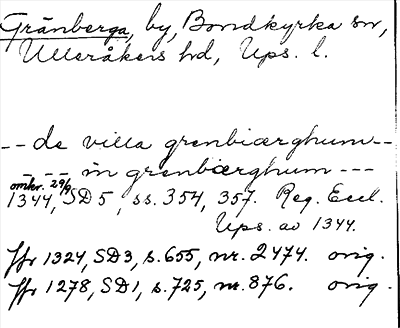 Gränberga, by, Bondkyrka sn,
Ulleråkers hd, Ups. l.
-- de villa grenbiærghum --
-- -- in grenbærghum ---
omkr. 29/9
1344, SD 5, ss. 354, 357. Reg. Eccl.
Ups. av 1344.
Jfr 1324, SD3, s. 655, nr. 2474. orig.
Jfr 1278, SD1, s. 725, nr. 876. orig.